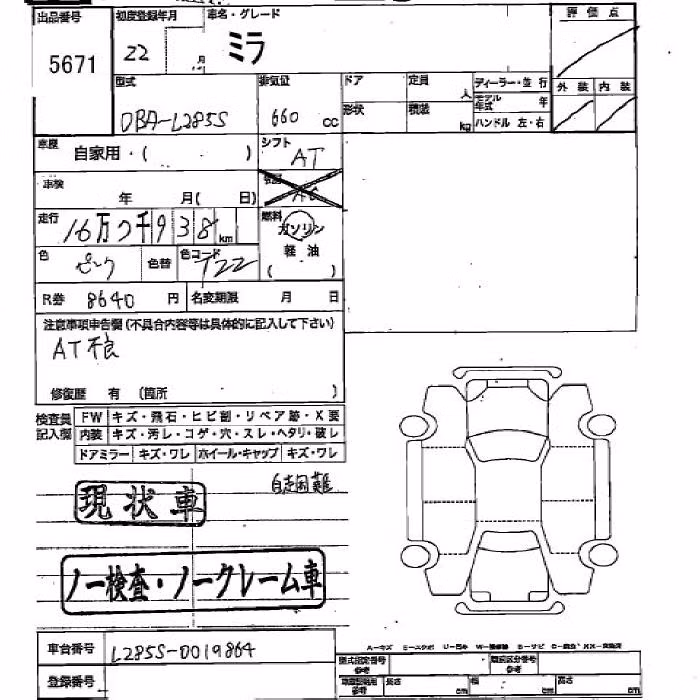 出品番号 初度登録年月 車名・グレード 評価点
5671 22 月 ミラ
型式 排気量 ドア 定員 人 ディーラー・並行 外装 内装
DBA-L285S 660 cc 形状 積載 kg モデル年式 年
ハンドル 左・右
車歴 自家用・( ) シフト AT
車検 年 月( 日) AC
走行 16万 千938 km 燃料 ガソリン
軽油
色 ピンク 色替 色コード T22 ( )
R券 8640 円 名変期限 月 日
注意事項申告欄(不具合内容等は具体的に記入して下さい)
AT不良
修復歴 有 (箇所 )
検査員 FW キズ・飛石・ヒビ割・リペア跡・X要
記入欄 内装 キズ・汚レ・コゲ・穴・スレ・ヘタリ・破レ
ドアミラー キズ・ワレ ホイール・キャップ キズ・ワレ
自走困難
現状車
ノー検査・ノークレーム車
車台番号 L285S-0019864
登録番号
型式指定番号 参考 類別区分番号 参考
参考 長さ cm 幅 cm 高さ cm